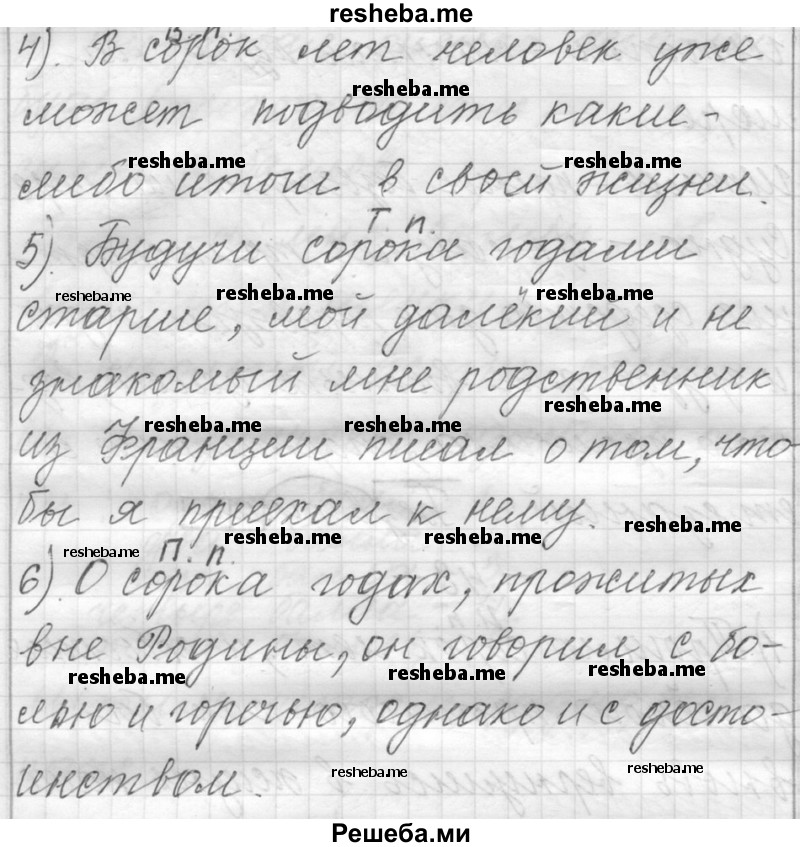 resheba.me
В. п.
4). В сорок лет человек уже
resheba.me
может подводить какие-
resheba.me resheba.me
либо итоги в своей жизни.
Т. п.
5). Будучи сорока годами
resheba.me resheba.me resheba.me
старше, мой далёкий и не
знакомый мне родственник
resheba.me
resheba.me resheba.me
из Франции писал о том, что
бы я приехал к нему.
resheba.me
resheba.me resheba.me
resheba.me П. п.
6). О сорока годах, прожитых
вне Родины, он говорил с бо-
resheba.me resheba.me resheba.me
лью и горечью, однако и с досто-
инством.
resheba.me resheba.me
Решеба.ми